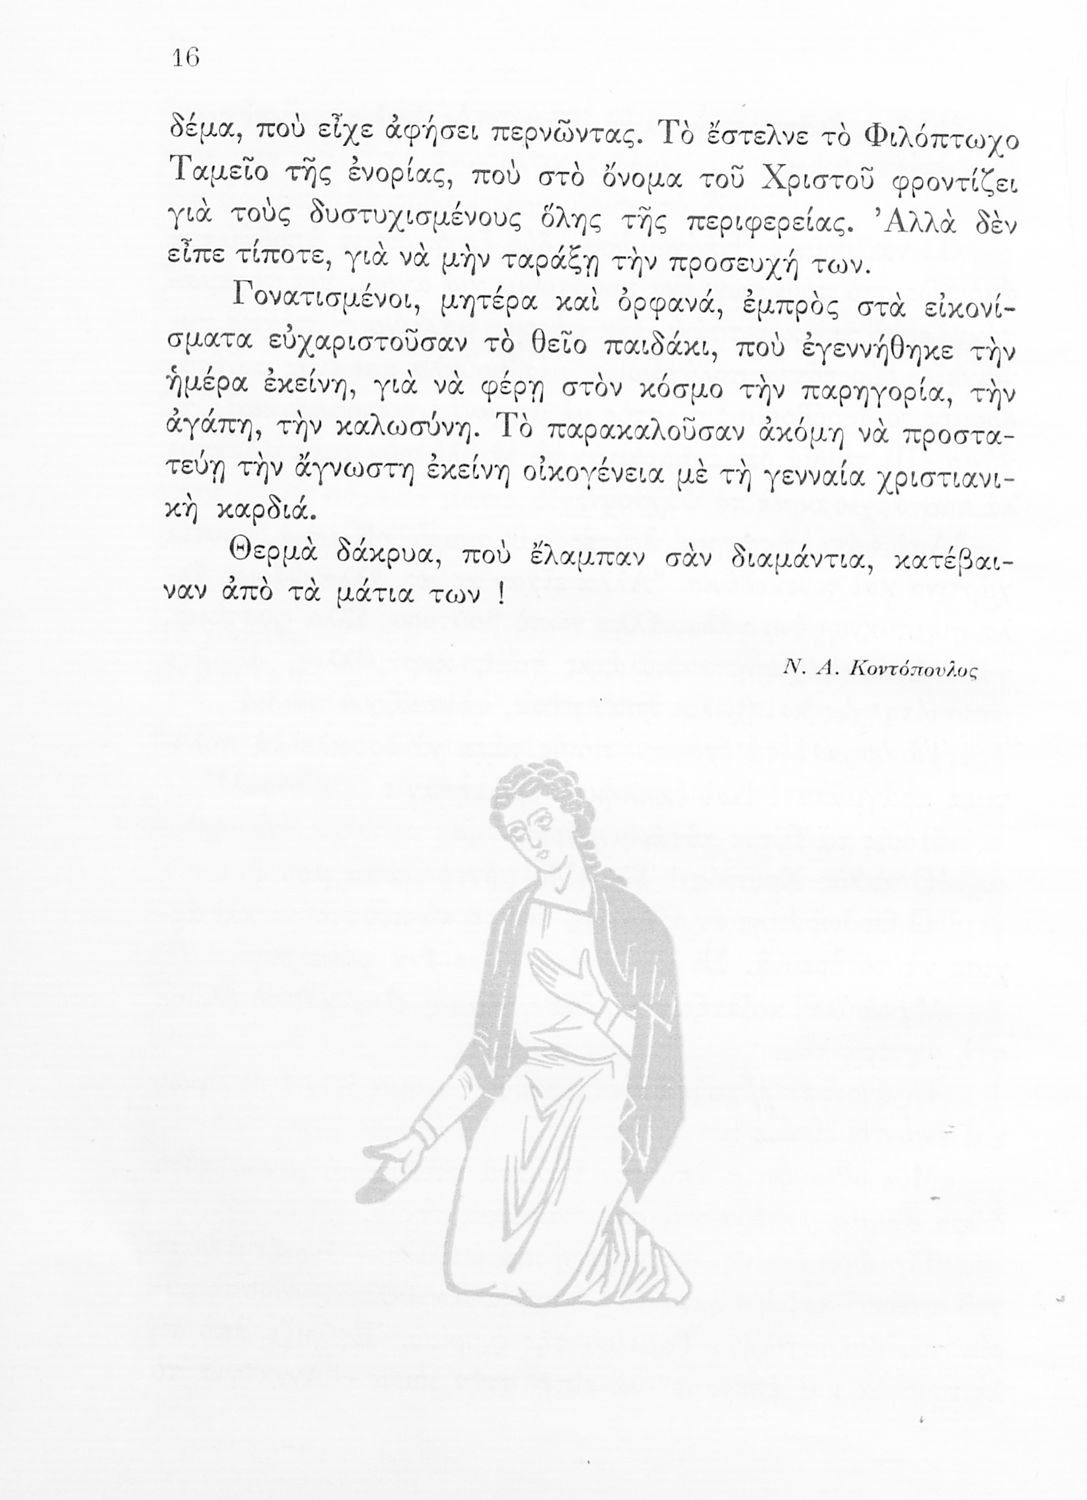 16
δέμα, ποὺ εἶχε ἀφήσει περνῶντας. Τὸ ἔστελνε τὸ Φιλόπτωχο
Ταμεῖο τῆς ἐνορίας, ποὺ στὸ ὄνομα τοῦ Χριστοῦ φροντίζει
γιὰ τοὺς δυστυχισμένους ὅλης τῆς περιφερείας. Ἀλλὰ δὲν
εἶπε τίποτε, γιὰ νὰ μὴν ταράξῃ τὴν προσευχή των.
Γονατισμένοι, μητέρα καὶ ὀρφανά, ἐμπρὸς στὰ εἰκονί-
σματα εὐχαριστοῦσαν τὸ θεῖο παιδάκι, ποὺ ἐγεννήθηκε τὴν
ἡμέρα ἐκείνη, γιὰ νὰ φέρῃ στὸν κόσμο τὴν παρηγορία, τὴν
ἀγάπη, τὴν καλωσύνη. Τὸ παρακαλοῦσαν ἀκόμη νὰ προστα-
τεύῃ τὴν ἄγνωστη ἐκείνη οἰκογένεια μὲ τὴ γενναία χριστιανι-
κὴ καρδιά.
Θερμὰ δάκρυα, ποὺ ἔλαμπαν σὰν διαμάντια, κατέβαι-
ναν ἀπὸ τὰ μάτια των !
Ν. Α. Κοντόπουλος